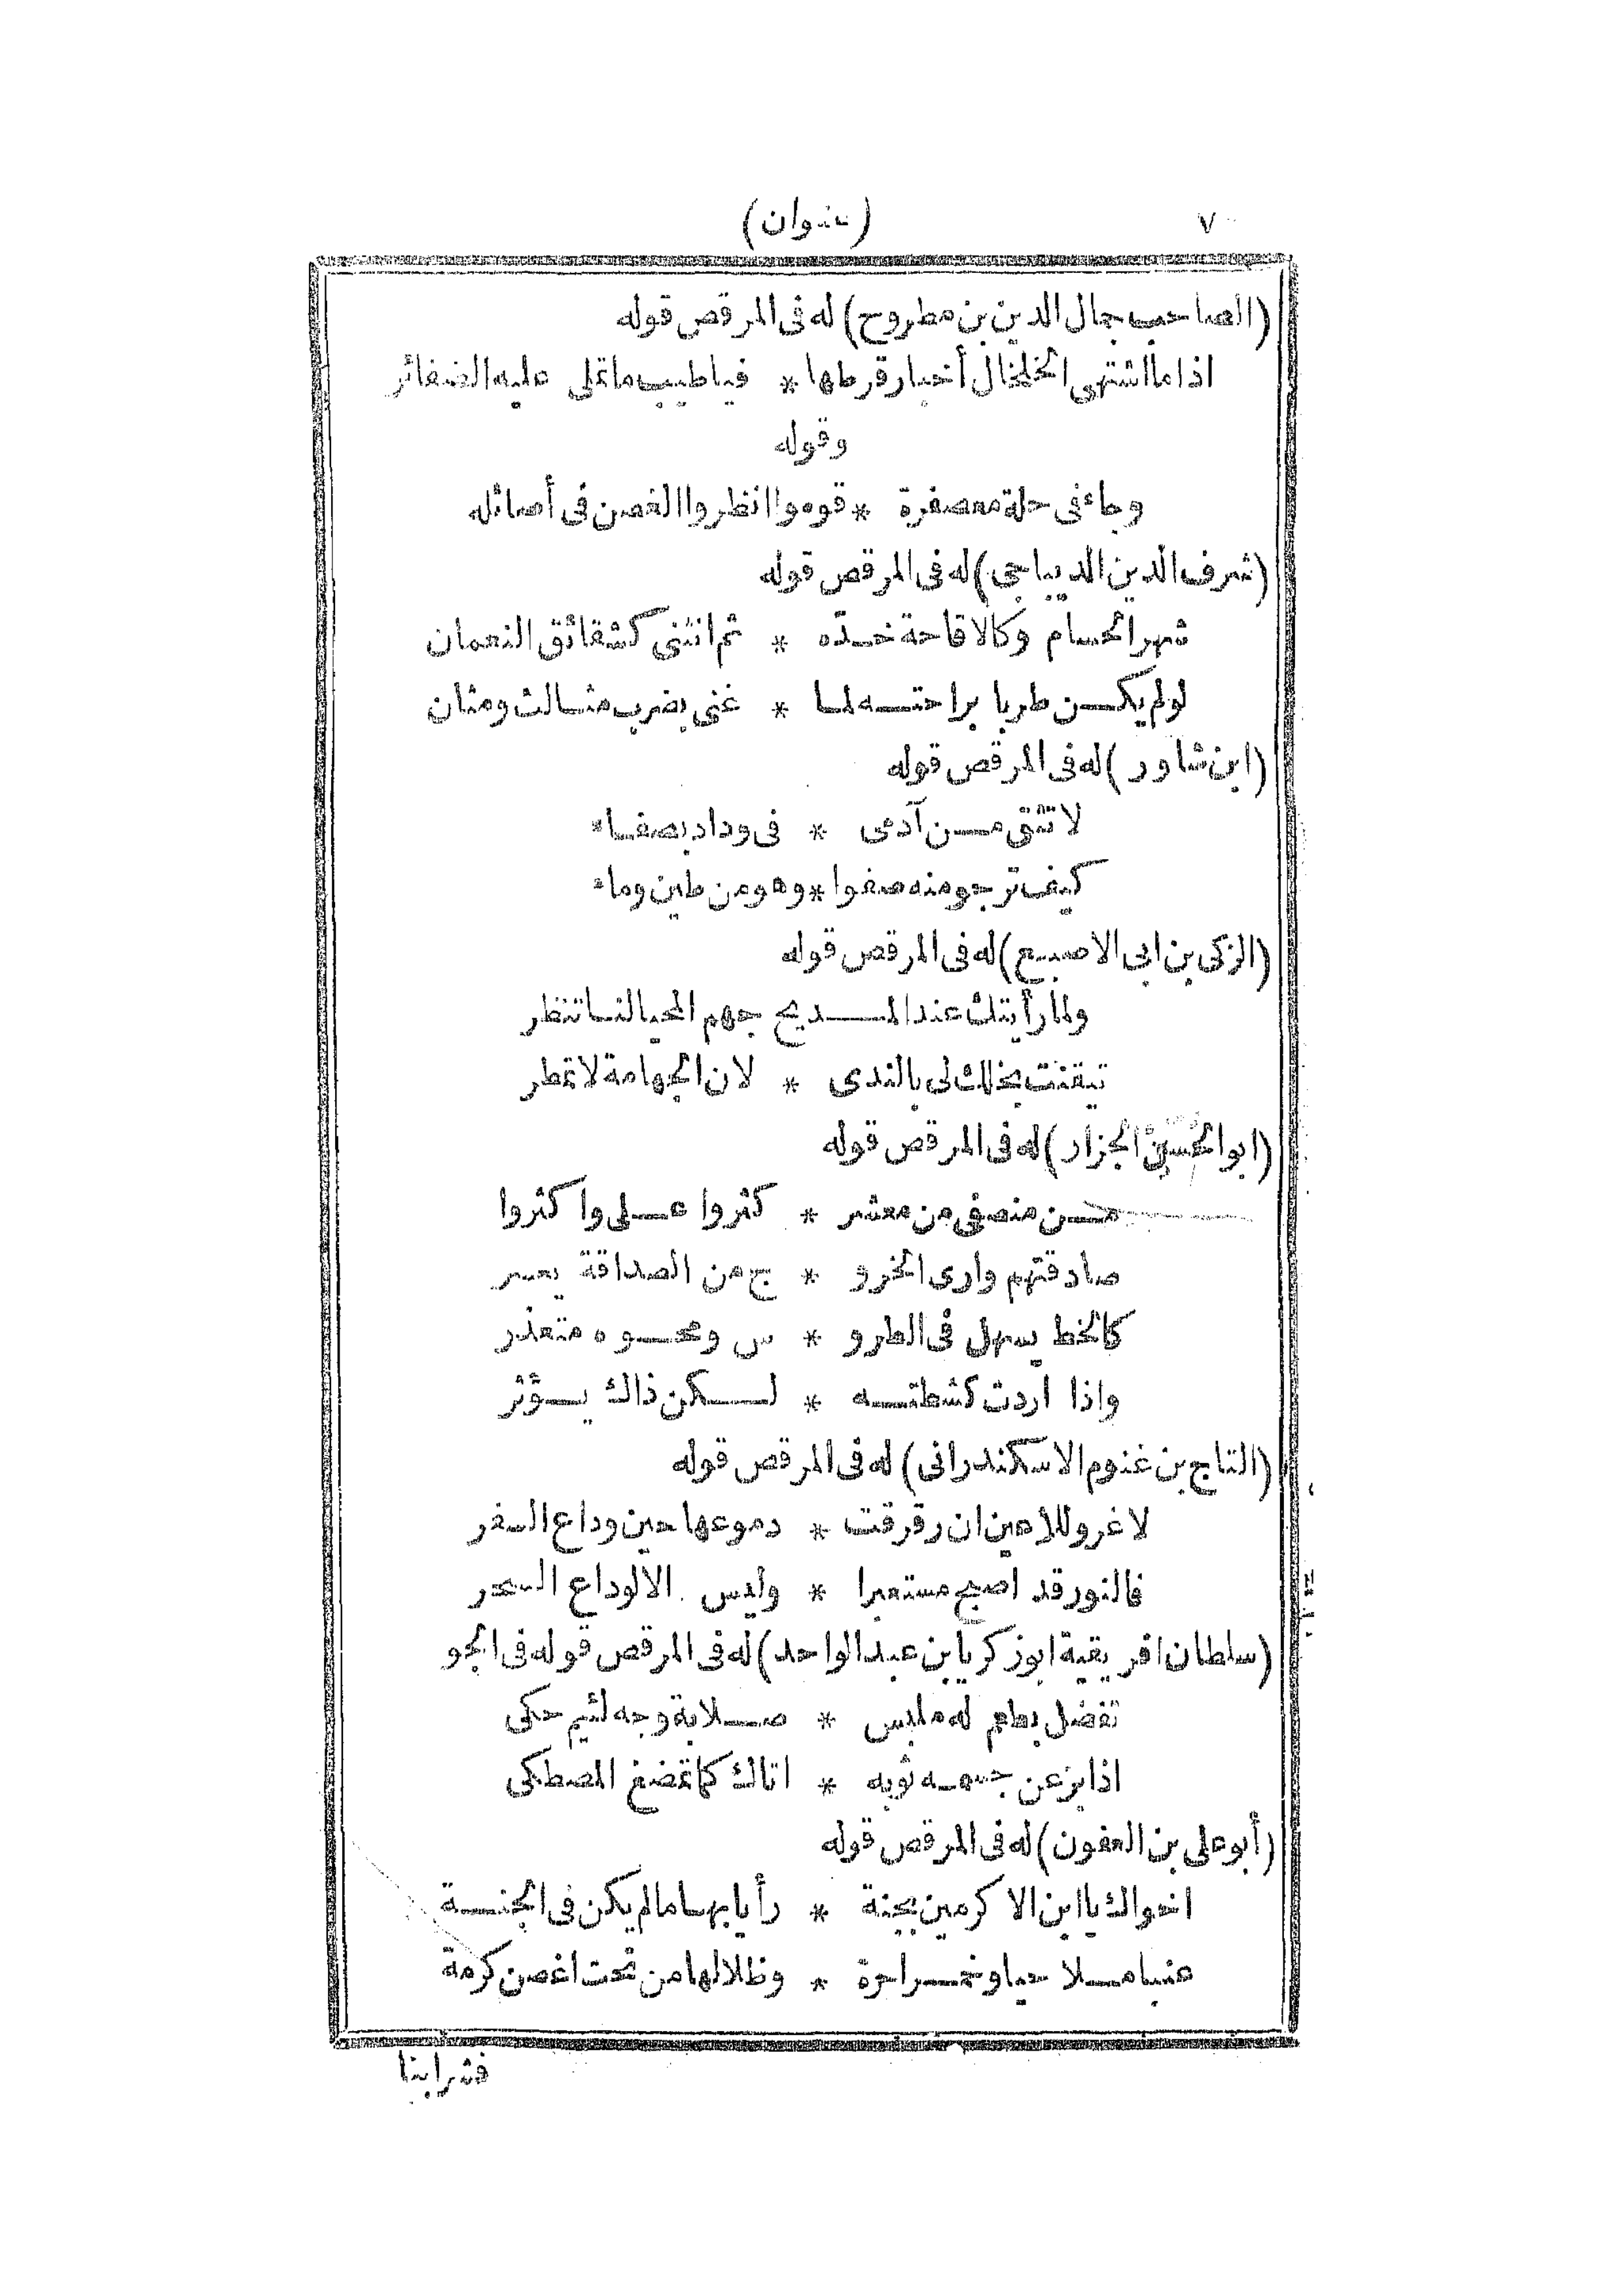 ٧٠ (عنوان)
(الصاحب جمال الدين بن مطروح) له فى المرقص قوله
اذا ما اشتهى الخلخال أخبار قرطها * فيا طيب ما تملى عليه الضفائر
وقوله
وجاء فى حلة معصفرة * قوموا انظروا الغصن فى أصائله
(شرف الدين الديباجى) له فى المرقص قوله
شهر الحسام وكالاقاحة خدّه * ثم انثنى كشقائق النعمان
لو لم يكن طربا براحته لما * غنى بضرب مثالث ومثان
(ابن شاور) له فى المرقص قوله
لا تثق من آدمى * فى وداد بصفاء
كيف ترجو منه صفوا * وهو من طين وماء
(الزكى بن ابى الاصبع) له فى المرقص قوله
ولما رأيتك عند المديح جهم المحيا لنا تنظر
تيقنت بخلك لى بالندى * لان الجهامة لا تمطر
(ابو الحسين الجزار) له فى المرقص قوله
من منصفى من معشر * كثروا على واكثروا
صادقتهم وارى الخرو * ج من الصداقة يعسر
كالخط يسهل فى الطرو * س ومحوه متعذر
واذا اردت كشطته * لكن ذاك يؤثر
(التاج بن غنوم الاسكندرانى) له فى المرقص قوله
لا غرو للاعين ان رقرقت * دموعها حين وداع السفر
فالنور قد اصبح مستعبرا * وليس الا لوداع السحر
(سلطان افريقية ابو زكريا بن عبد الواحد) له فى المرقص قوله فى الجو
تفضل بطعم له ملبس * صلابة وجه لئيم حكى
اذا بز عن جسمه ثوبه * اتاك كما تمضغ المصطكى
(أبو على بن العفون) له فى المرقص قوله
اخواك يا ابن الاكرمين بجنة * رأيا بها ما لم يكن فى الجنة
عنبا ملاحيا وخمرا حرة * وظلالها من تحت اغصن كرمة
فشرابنا